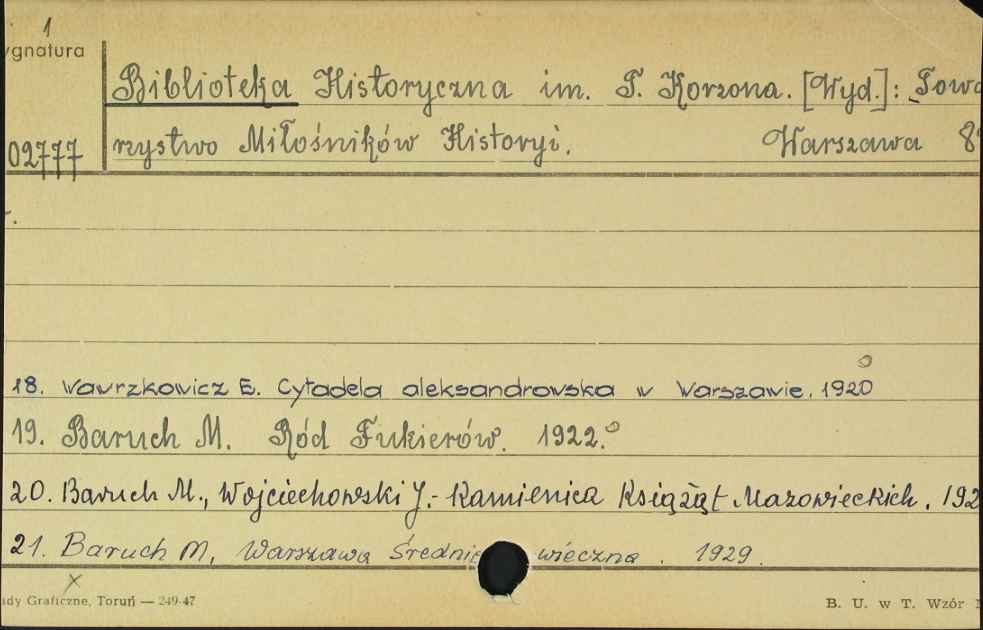 1
ygnatura
Biblioteka Historyczna im. T. Korzona. [Wyd.]: Towa
02777 rzystwo Miłośników Historyi. Warszawa 8°
18. Wawrzkowicz E. Cytadela aleksandrowska w Warszawie. 1920
19. Baruch M. Ród Fukierów. 1922.
20. Baruch M., Wojciechowski J.- Kamienica Książąt Mazowieckich. 192
21. Baruch M, Warszawa Średniowieczna. 1929.
ady Graficzne, Toruń — 249-47 B. U. w T. Wzór